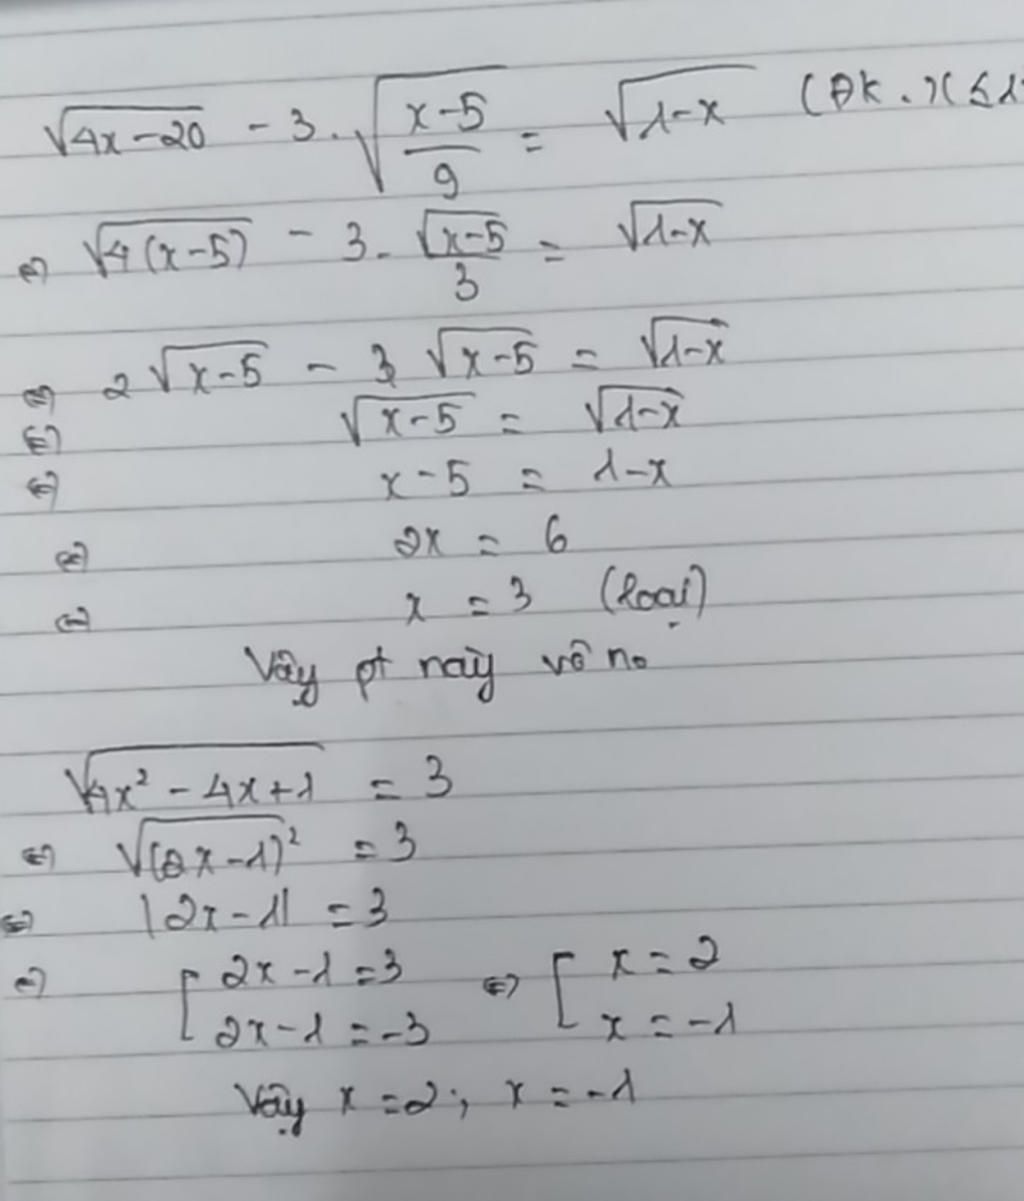 √(4x-20) - 3.√((x-5)/9) = √(1-x) (ĐK. x ≤ 1
⇔ √(4(x-5)) - 3. √(x-5)/3 = √(1-x)
⇔ 2√(x-5) - 3 √(x-5) = √(1-x)
⇔ √(x-5) = √(1-x)
⇔ x-5 = 1-x
⇔ 2x = 6
⇔ x = 3 (loại)
Vậy pt này vô no
√(4x²-4x+1) = 3
⇔ √((2x-1)²) = 3
⇔ |2x-1| = 3
⇔ [ 2x-1=3 ⇔ [ x = 2
2x-1 = -3 x = -1
Vậy x = 2; x = -1